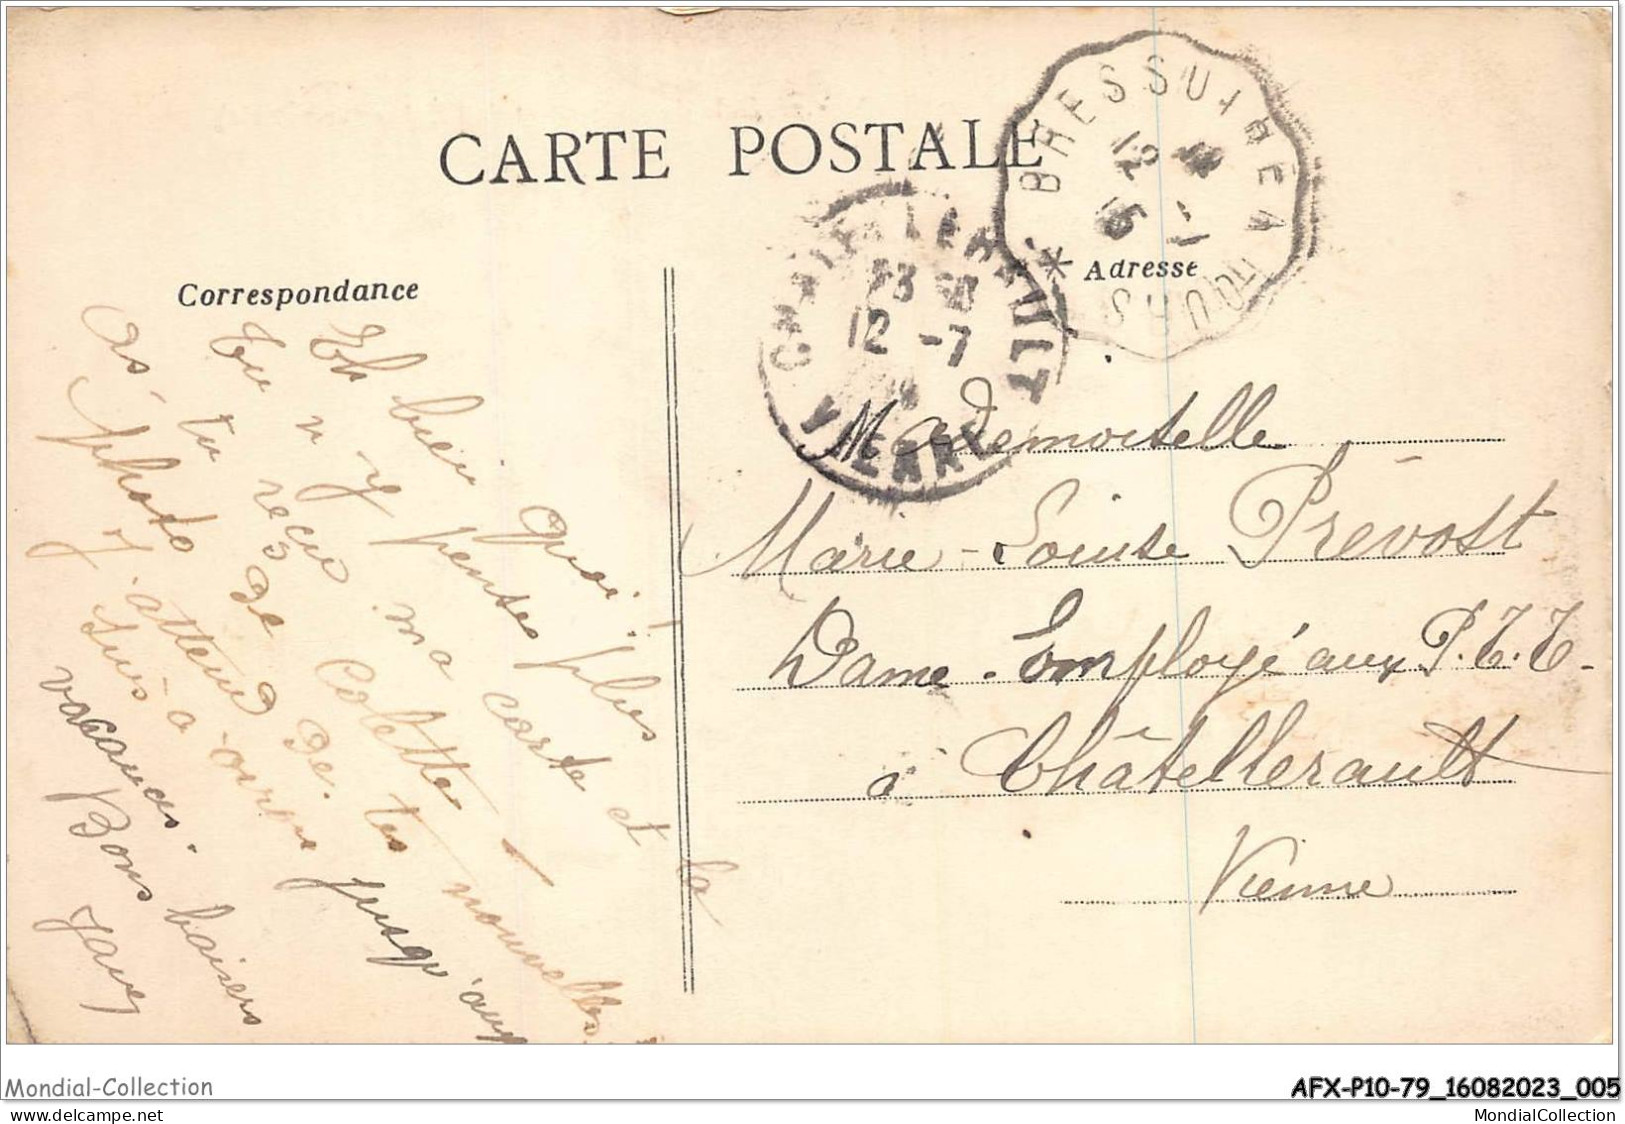 CARTE POSTALE
BRESSUIRE A TOURS
12
15
CHATELLERAULT
23
12 -7
VIENNE
Correspondance
Adresse
Eh bien quoi! plus
tu n'y penses
As-tu reçu ma carte et la
photo de Colette
J'attend de tes nouvelles
jusqu'aux
vacances. Bons baisers
Mademoiselle
Marie-Louise Prévost
Dame-Employé aux P.T.T.
à Châtellerault
Vienne
Mondial-Collection
www.delcampe.net
AFX-P10-79_16082023_005
MondialCollection